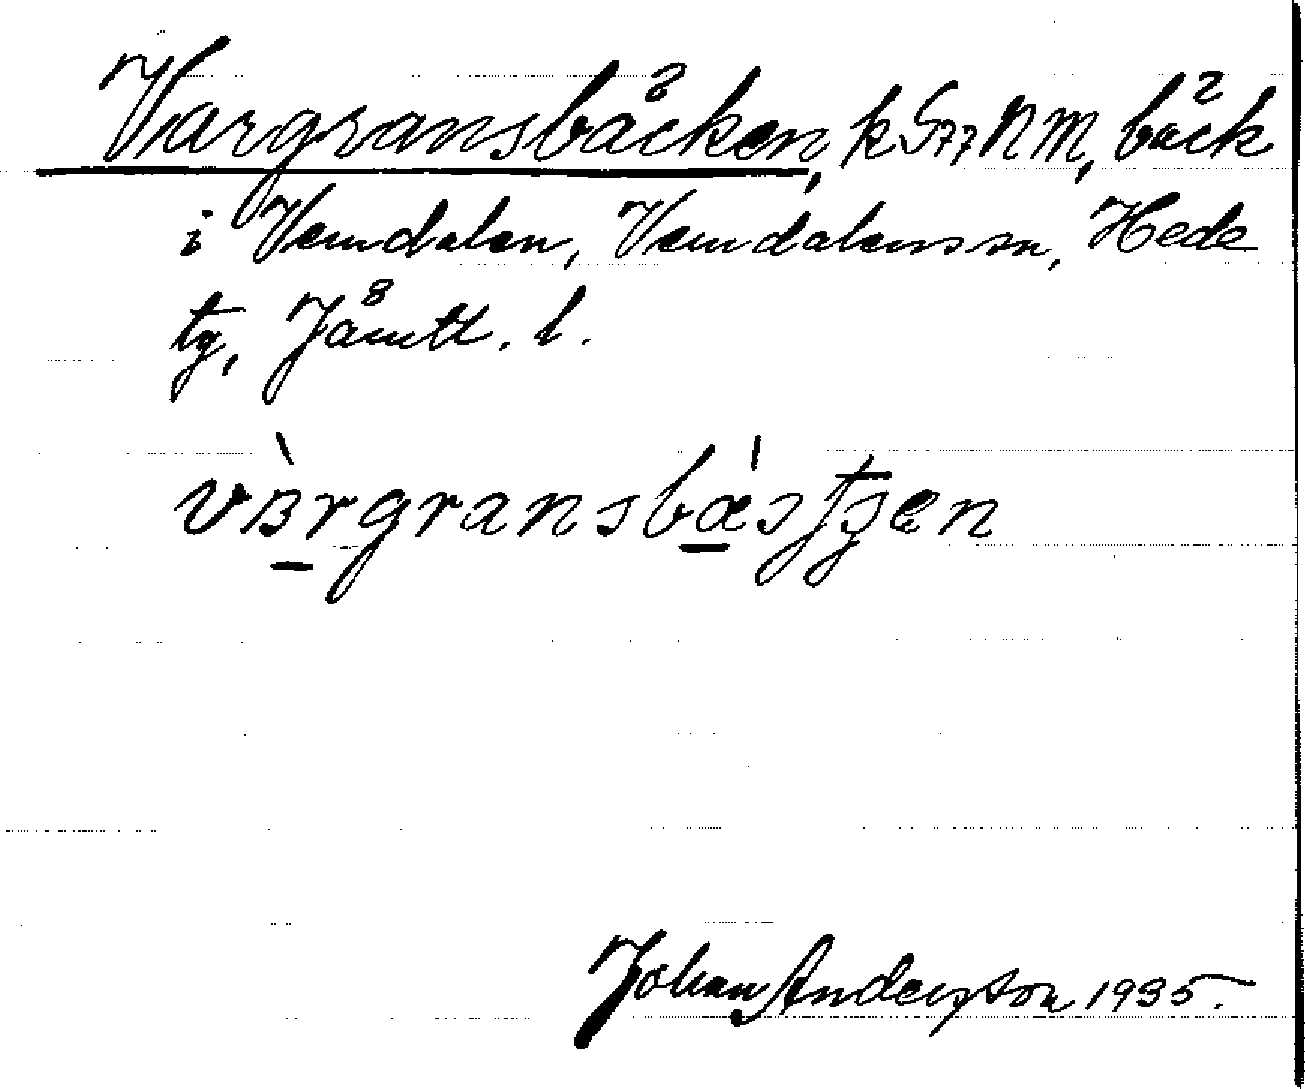 Vargransbäcken, k S77 NM, bäck
i Vemdalen, Vemdalens sn, Hede
tg, Jämtl. l.
Johan Anderson 1935.